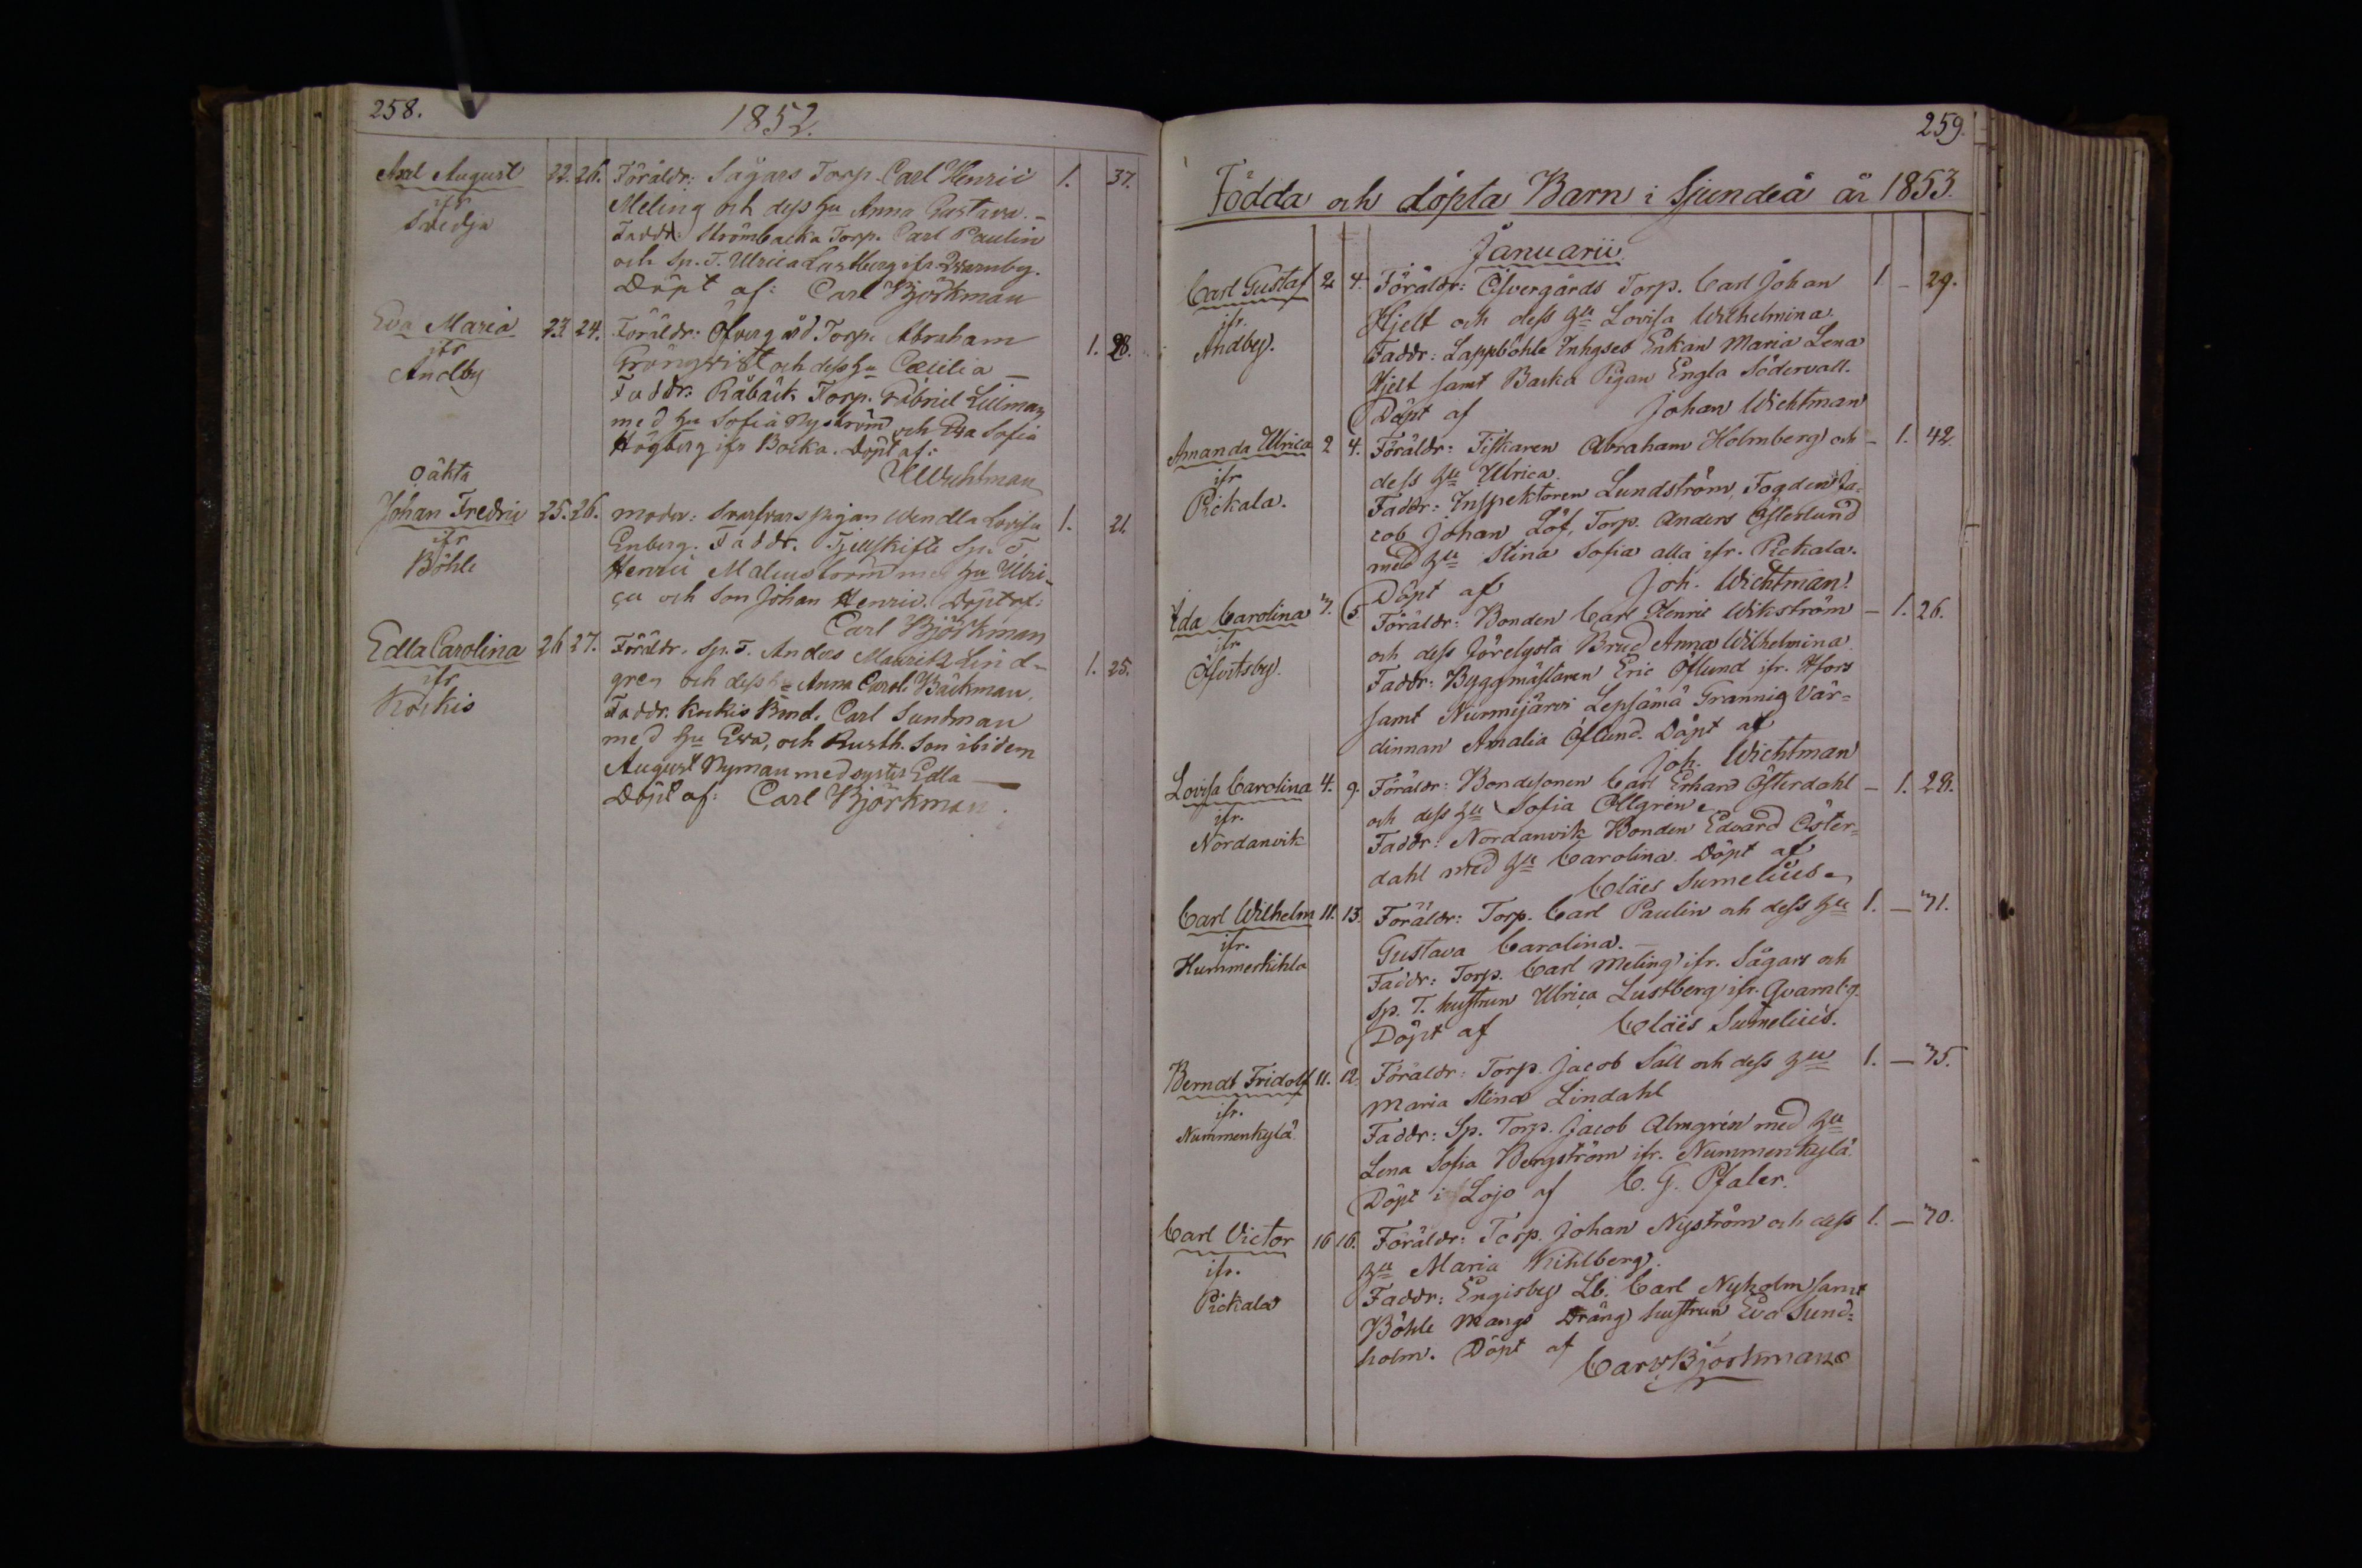 258.
1852.
Axel August 22. 26. Föräldr: Sågars Torp. Carl Henric 1. 37.
ifr Meling och dess Hu Anna Gustava. –
Svedja Faddr: Strömbacka Torp. Carl Paulin
och Sp. T. Ulrica Lustberg ifr. Qvarnby.
Döpt af: Carl Björkman
Eva Maria 23. 24. Föräldr: Ofverg åd. Torp. Abraham 1. 28.
ifr Grönqvist och dess Hu Cæcilia –
Andby Faddr: Råbäck Torp. Gabriel Lillman
med Hu Sofia Nyström och Eva Sofia
Högberg ifr Backa. Döpt af:
Wichtman
Oäkta
Johan Fredric 25. 26. moder: Svarfvars pigan Wendla Lovisa 1. 21.
ifr Enberg. Faddr. Fjellskifts Sp. T.
Böhle Henric Malmström med Hu Ulri-
ca och Son Johan Henric. Döpt af:
Carl Björkman
Edla Carolina 26 27. Föräldr. Sp. T. Anders Mauritz Lind- 1. 25.
ifr gren och dess Hu Anna Carol. Bäckman.
Kockis Faddr. Kockis Bond. Carl Sundman
med Hu Eva, och Rusth. Son ibidem
August Nyman med syster Edla
Döpt af: Carl Björkman.
259.
Födda och döpta Barn i Sjundeå år 1853.
Januarii
Carl Gustaf 2 4. Föräldr: Ofvergårds Torp. Carl Johan 1 – 29.
ifr. Hjelt och dess Hu Lovisa Wilhelmina.
Andby. Faddr: Lappböhle Inhyses Enkan Maria Lena
Hjelt samt Backa Pigan Engla Södervall.
Döpt af Johan Wichtman
Amanda Ulrica 2 4. Föräldr: Fiskaren Abraham Holmberg och – 1. 42.
ifr dess Hu Ulrica.
Pickala. Faddr: Inspektoren Lundström, Fogden Ja-
cob Johan Löf, Torp. Anders Österlund
med Hu Stina Sofia alla ifr. Pickala.
Döpt af Joh. Wichtman.
Ida Carolina 3. 5. Föräldr: Bonden Carl Henric Wikström – 1. 26.
ifr och dess förelysta Brud Anna Wilhelmina
Ofvitsby. Faddr: Byggmästaren Eric Öflund ifr. Hfors
samt Nurmijärvi Lepsämä Grannig Vär-
dinnan Amalia Öflund. Döpt af
Joh. Wichtman
Lovisa Carolina 4. 9. Föräldr: Bondesonen Carl Erhard Österdahl – 1. 28.
ifr. och dess Hu Sofia Ollgrén.
Nordanvik Faddr: Nordanvik Bonden Edvard Öster-
dahl med Hu Carolina. Döpt af
Claës Sumelius.
Carl Wilhelm 11. 13. Föräldr: Torp. Carl Paulin och dess Hu 1. – 31.
ifr. Gustava Carolina. –
Hummerkihla Faddr: Torp. Carl Meling ifr. Sågars och
Sp. T. hustrun Ulrica Lustberg ifr. Qvarnby.
Döpt af Claës Sumelius.
Berndt Fridolf 11. 12. Föräldr: Torp. Jacob Säll och dess Hu 1. – 35.
ifr. Maria Stina Lindahl
Nummenkylä Faddr: Sp. Torp. Jacob Almgrén med Hu
Lena Sofia Bergström ifr. Nummenkylä.
Döpt i Lojo af C. G. Pfaler.
Carl Victor 16 16. Föräldr: Torp. Johan Nyström och dess 1. – 30.
ifr. Hu Maria Kihlberg.
Pickala Faddr: Engisby Lb. Carl Nyholm samt
Böhle Mangs Dräng hustrun Eva Sund-
holm. Döpt af
Carl Björkman